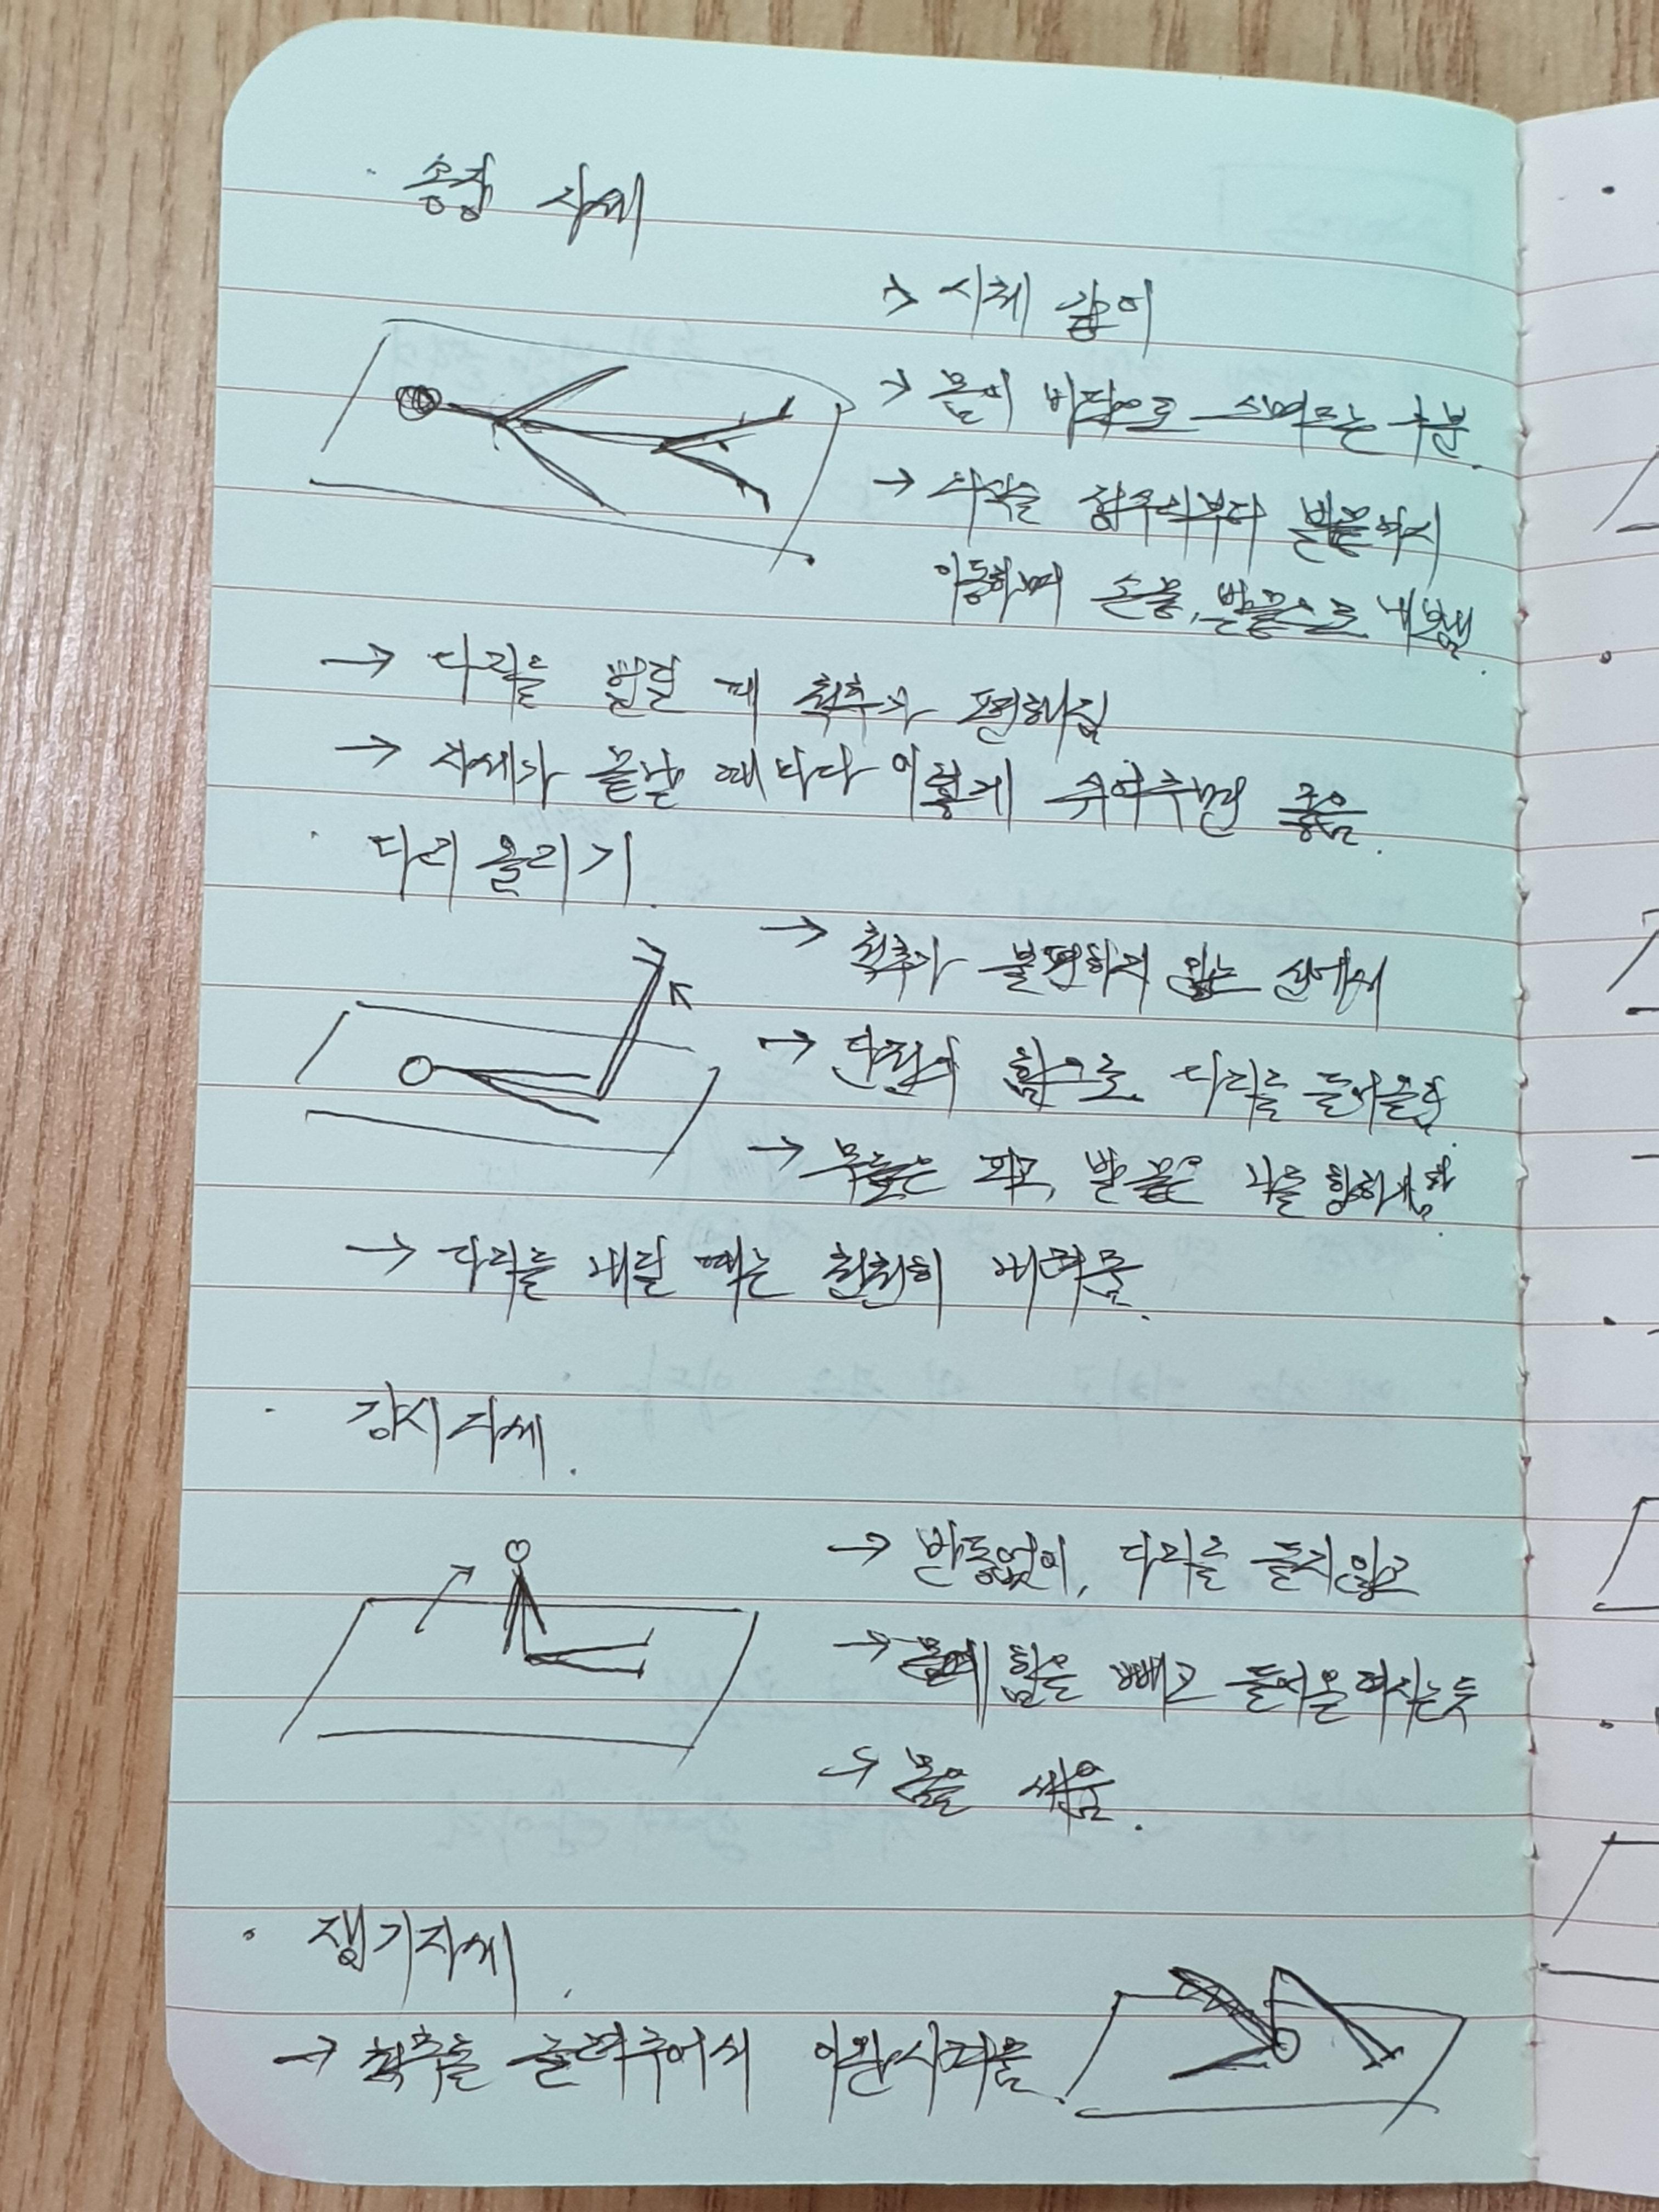 · 송장 자세
→ 시체 같이
→ 몸이 바닥으로 스며드는 부분.
→ 의식을 정수리부터 발끝까지
이동하며 손끝, 발끝으로 내보냄.
→ 다리를 벌릴 때 척추가 편해짐
→ 자세가 끝날 때마다 이렇게 쉬어주면 좋음.
· 다리 올리기.
→ 척추가 불편하지 않는 선에서
→ 단전의 힘으로 다리를 들어올림.
→ 무릎은 펴고, 발끝은 나를 향하게 함.
→ 다리를 내릴 때는 천천히 내려옴.
· 강시자세.
→ 반동없이, 다리를 들지않고
→ 몸에 힘을 빼고 들어올려지는 듯
→ 몸을 세움.
· 쟁기자세.
→ 척추를 늘려주어서 이완시켜줌.